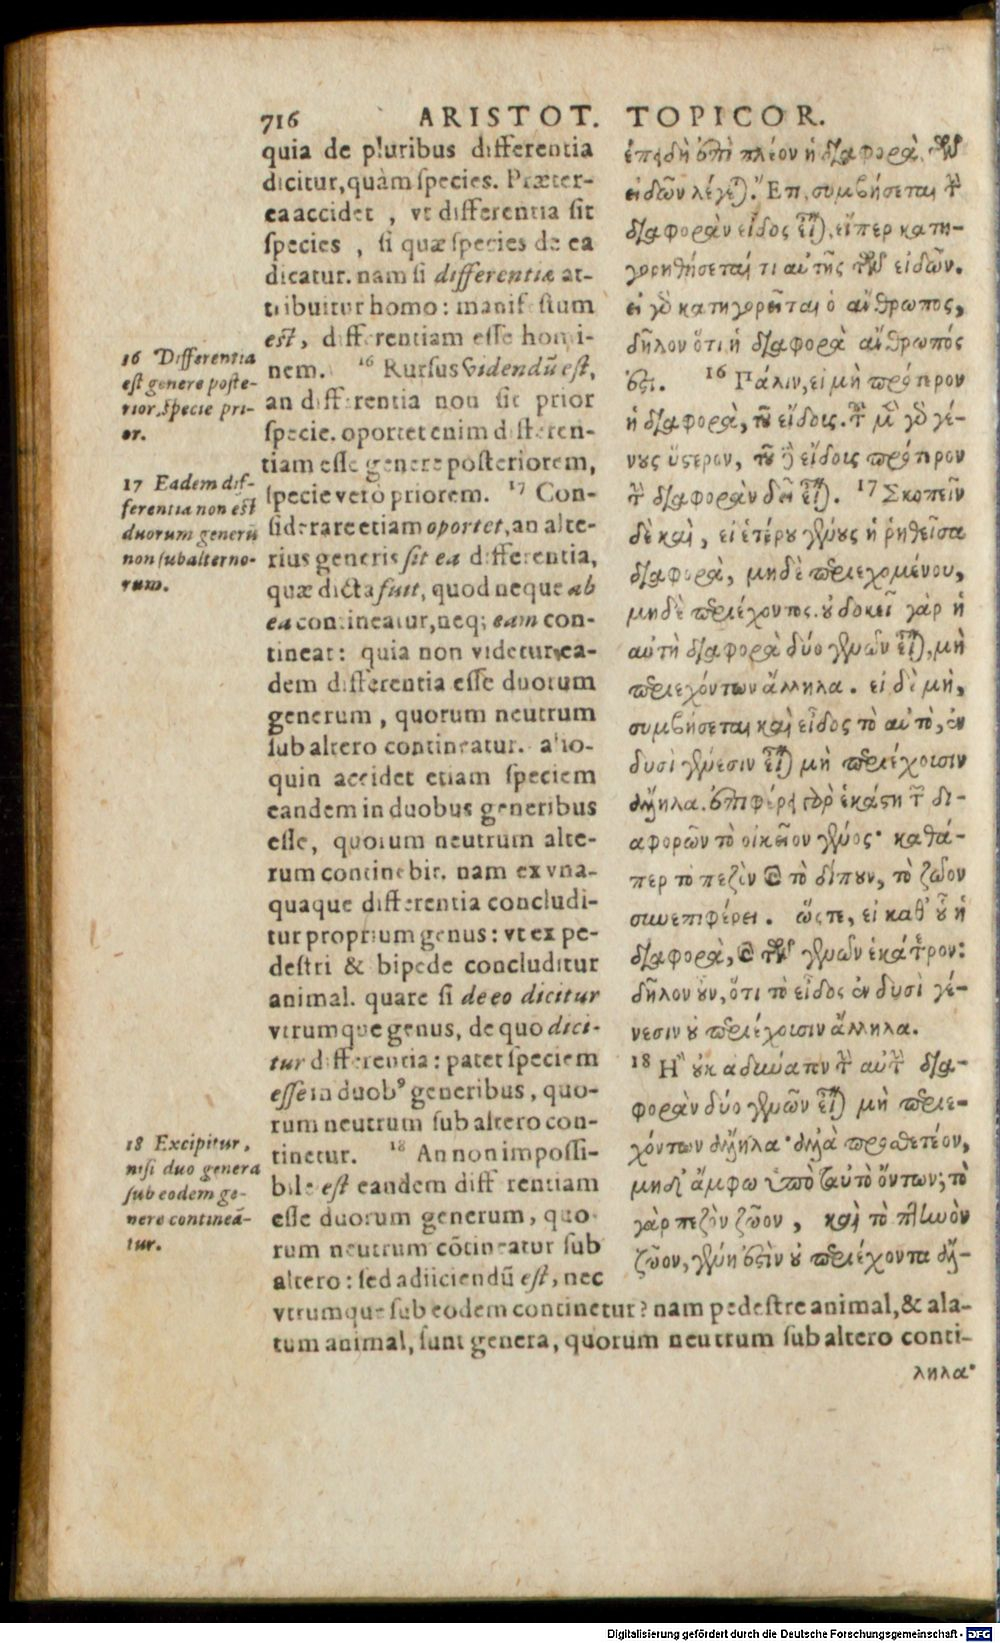 716 ARISTOT. TOPICOR.
quia de pluribus differentia
dicitur, quàm species. Præter-
ea accidet , vt differentia sit
species , si quæ species de ea
dicatur. nam si differentiæ at-
tribuitur homo: manifestum
est, differentiam esse homi-
nem. 16 Rursus videndũ est,
an differentia non sit prior
specie. oportet enim differen-
tiam esse genere posteriorem,
specie verò priorem. 17 Con-
siderare etiam oportet, an alte-
rius generis sit ea differentia,
quæ dicta fuit, quod neque ab
ea contineatur, neq; eam con-
tineat: quia non videtur ea-
dem differentia esse duorum
generum , quorum neutrum
sub altero contineatur. alio-
quin accidet etiam speciem
eandem in duobus generibus
esse, quorum neutrum alte-
rum continebit. nam ex vna-
quaque differentia concludi-
tur proprium genus: vt ex pe-
destri & bipede concluditur
animal. quare si de eo dicitur
vtrumque genus, de quo dici-
tur differentia: patet speciem
esse in duobꝰ generibus , quo-
rum neutrum sub altero con-
tinetur. 18 An non impossi-
bile est eandem differentiam
esse duorum generum, quo-
rum neutrum cõtineatur sub
altero: sed adiiciendũ est, nec
vtrumque sub eodem continetur? nam pedestre animal, & ala-
tum animal, sunt genera, quorum neutrum sub altero conti-
16 Differentia
est genere poste-
rior, specie pri-
or.
17 Eadem dif-
ferentia non est
duorum generũ
non subalterno-
rum.
18 Excipitur,
nisi duo genera
sub eodem ge-
nere contineã-
tur.
ἐπειδὴ ἐπὶ πλέον ἡ διαφορὰ τῶν
εἰδῶν λέγεται. Ἔτι, συμβήσεται τὴν
διαφορὰν εἶδος εἶναι, εἴπερ κατη-
γορηθήσεταί τι αὐτῆς τῶν εἰδῶν.
εἰ γὰρ κατηγορεῖται ὁ ἄνθρωπος,
δῆλον ὅτι ἡ διαφορὰ ἄνθρωπός
ἐστι. 16 Πάλιν, εἰ μὴ πρότερον
ἡ διαφορὰ, τοῦ εἴδοις. τοῦ μὲν γὰρ γέ-
νους ὕστερον, τοῦ δὲ εἴδοις πρότερον
τὴν διαφορὰν δεῖ εἶναι. 17 Σκοπεῖν
δὲ καὶ, εἰ ἑτέρου γένους ἡ ῥηθεῖσα
διαφορὰ, μηδὲ περιεχομένου,
μηδὲ περιέχοντος. οὐ δοκεῖ γὰρ ἡ
αὐτὴ διαφορὰ δύο γενῶν εἶναι, μὴ
περιεχόντων ἄλληλα. εἰ δὲ μὴ,
συμβήσεται καὶ εἶδος τὸ αὐτὸ, ἐν
δυσὶ γένεσιν εἶναι μὴ περιέχοισιν
ἄλληλα. ἐπιφέρει γὰρ ἑκάστη τῶν δι-
αφορῶν τὸ οἰκεῖον γένος· καθά-
περ τὸ πεζὸν καὶ τὸ δίπουν, τὸ ζῷον
συνεπιφέρει. ὥςτε, εἰ καθ' οὗ ἡ
διαφορὰ, καὶ τῶν γενῶν ἑκάτερον:
δῆλον οὖν, ὅτι τὸ εἶδος ἐν δυσὶ γέ-
νεσιν οὐ περιέχοισιν ἄλληλα.
18 Ἢ οὐκ ἀδύνατον τὴν αὐτὴν δια-
φορὰν δύο γενῶν εἶναι μὴ περιε-
χόντων ἄλληλα· ἀλλὰ προσθετέον,
μηδ' ἄμφω ὑπὸ ταὐτὸ ὄντων; τὸ
γὰρ πεζὸν ζῷον, καὶ τὸ πτηνὸν
ζῷον, γένη ἐστὶν οὐ περιέχοντα ἄλ-
ληλα·
Digitalisierung gefördert durch die Deutsche Forschungsgemeinschaft - DFG